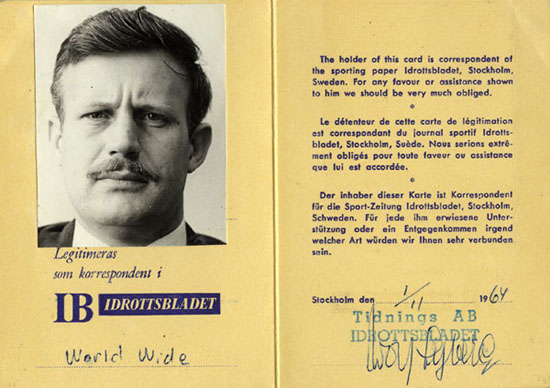 Legitimeras
som korrespondent i
IB IDROTTSBLADET
World Wide
The holder of this card is correspondent
of the sporting paper Idrottsbladet, Stockholm,
Sweden. For any favour or assistance shown
to him we should be very much obliged.
Le détenteur de cette carte de légitimation
est correspondant du journal sportif Idrotts-
bladet, Stockholm, Suède. Nous serions extrê-
ment obligés pour toute faveur ou assistance
que lui est accordée.
Der Inhaber dieser Karte ist Korrespondent
für die Sport-Zeitung Idrottsbladet, Stockholm,
Schweden. Für jede ihm erwiesene Unter-
stützung oder ein Entgegenkommen irgend
welcher Art würden wir Ihnen sehr verbunden
sein.
Stockholm den 1/11 1964
Tidnings AB
IDROTTSBLADET